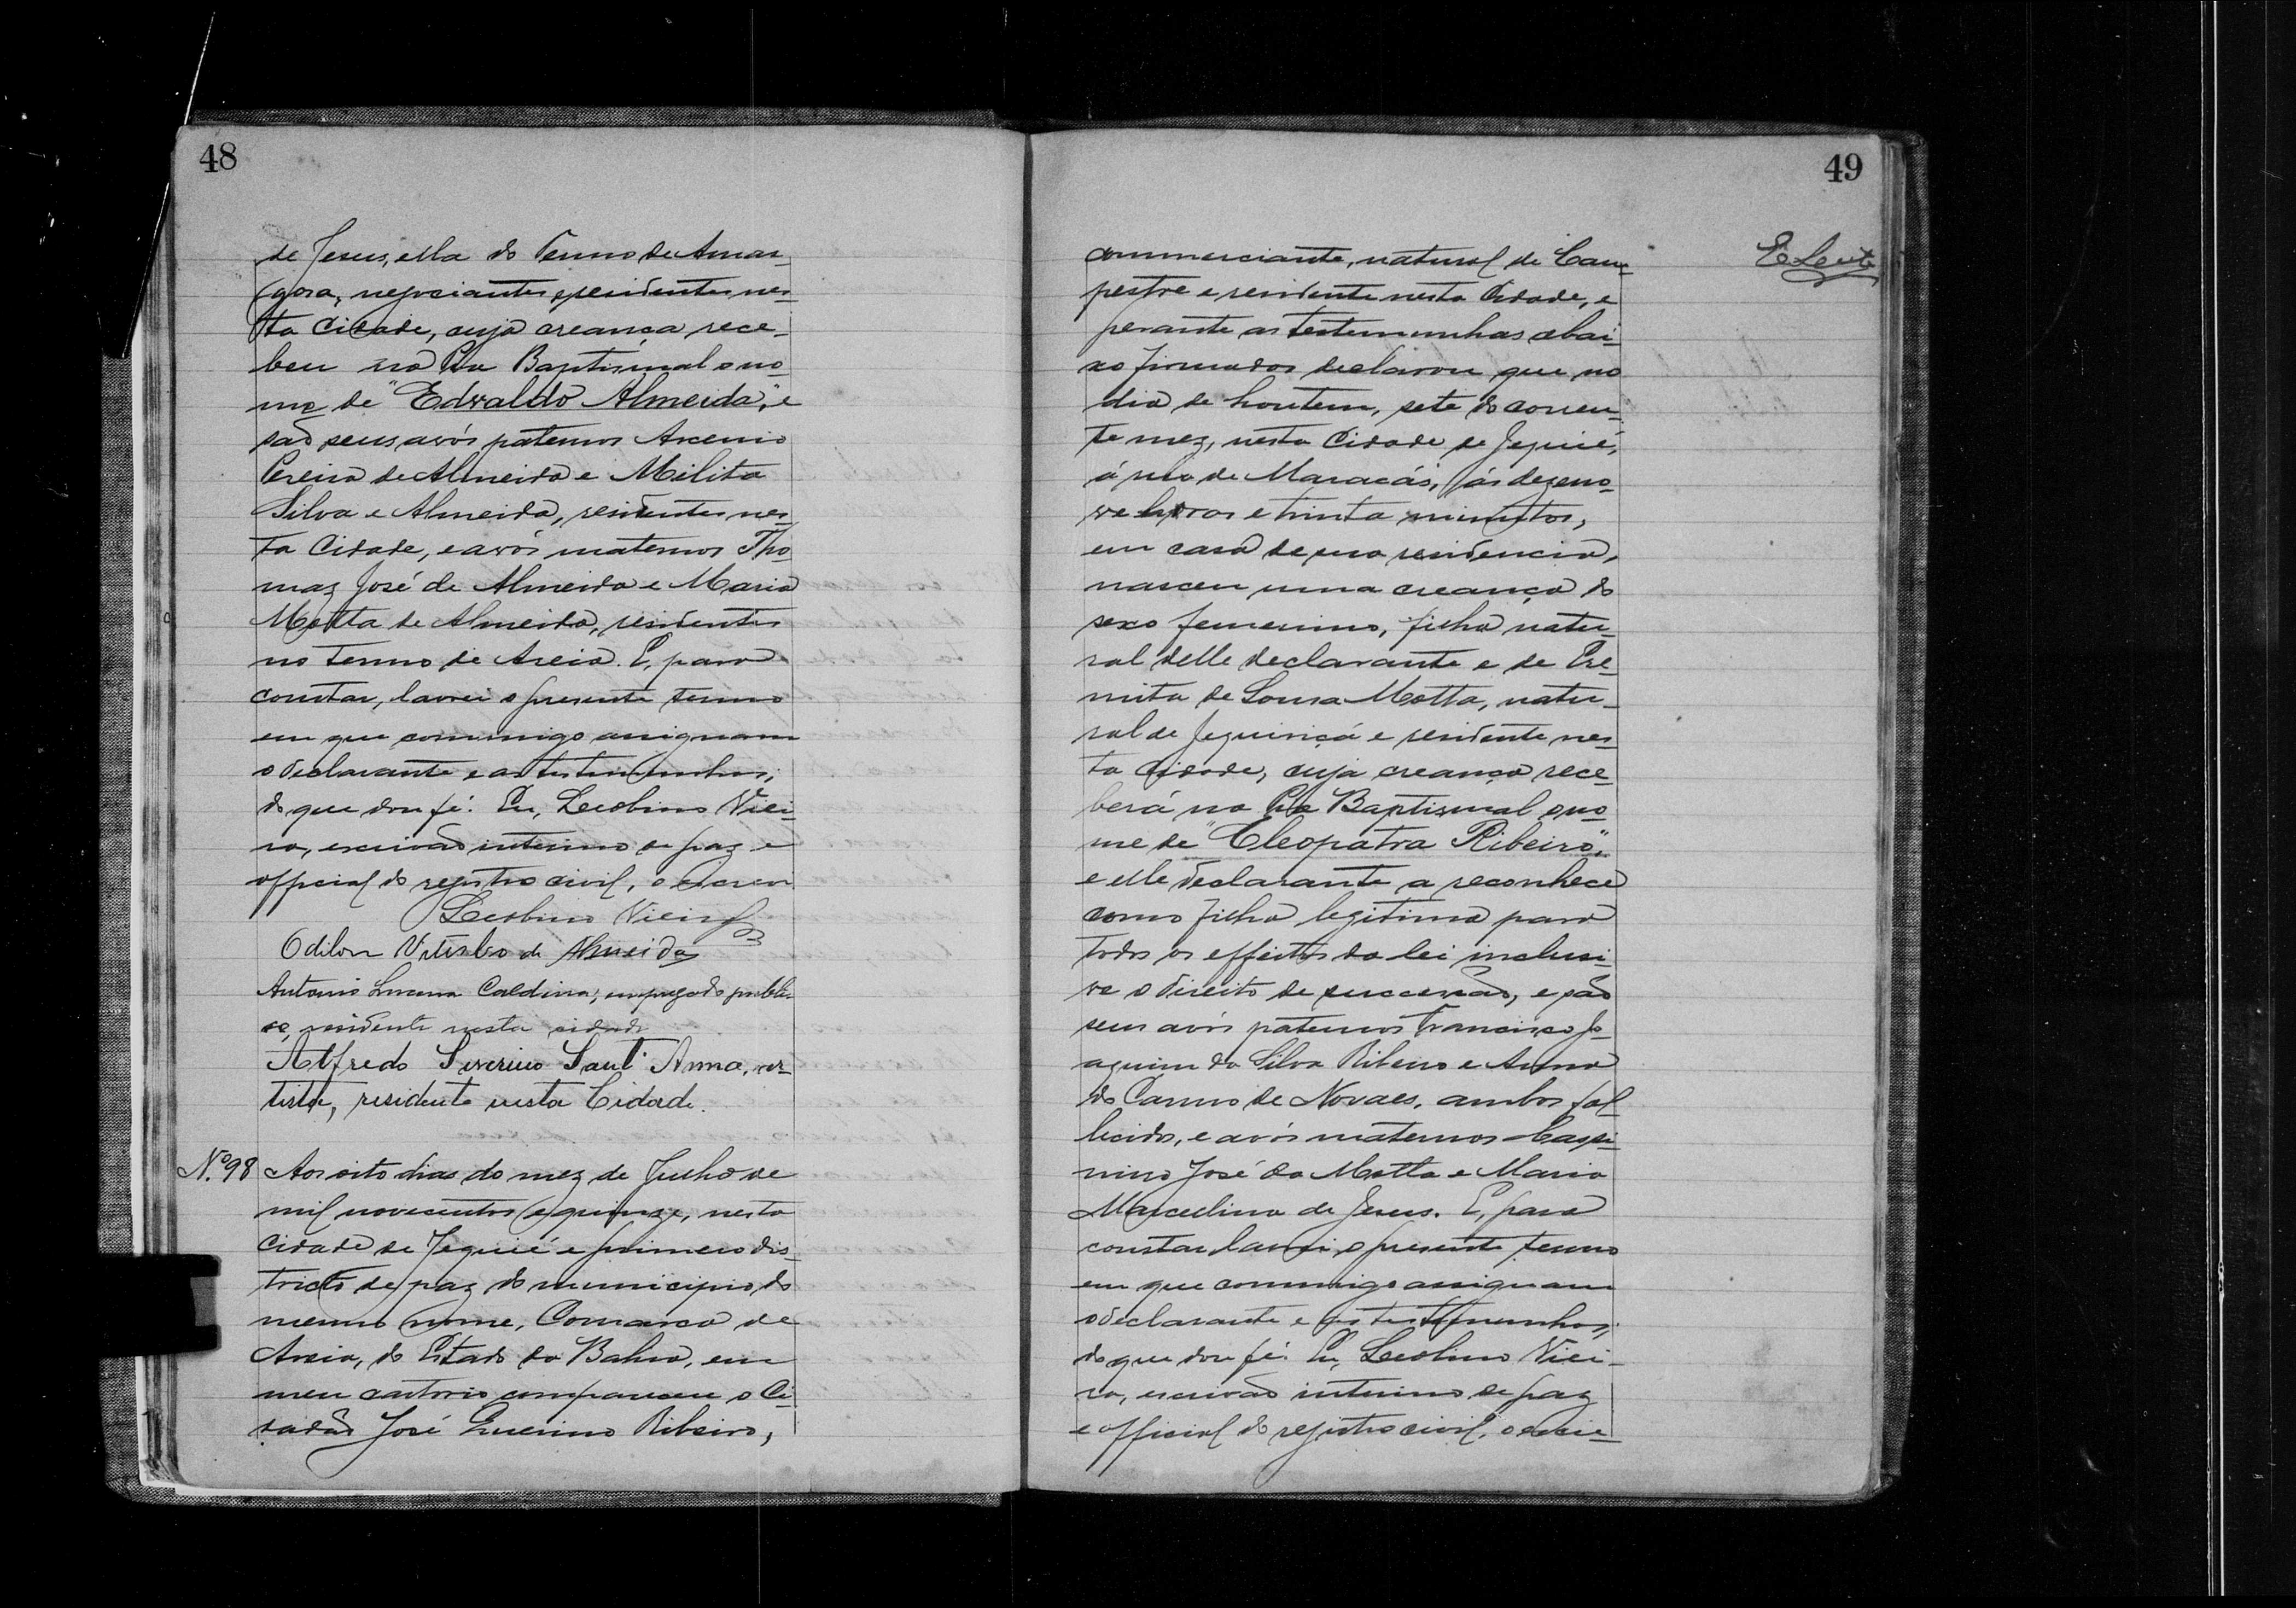 48
de Jesus, ella do Termo de Amar-
gosa, negociantes e residentes nes-
ta Cidade, cuja creança rece-
beu na Pia Baptismal o no-
me de "Edvaldo Almeida", e
são seus avós paternos Arcenio
Pereira de Almeida e Melita
Silva e Almeida, residentes nes-
ta Cidade, e avós maternos Tho-
maz José de Almeida e Maria
Motta de Almeida, residentes
no termo de Areia. E, para
constar, lavrei o presente termo
em que commigo assignam
o declarante e as testimunhas;
do que dou fé. Eu, Leolino Viei-
ra, escrivão interino de paz e
official do registro civil, o escrevi
Leolino Vieira
Odilon de Almeida
Antonio Lucena Caldina, empregado publi-
co, residente nesta cidade
Alfredo Severino Sant'Anna, ar-
tista, residente nesta Cidade.
Nº 98 Aos oito dias do mez de Julho de
mil novecentos e quinze, nesta
Cidade de Jequié e primeiro dis-
tricto de paz do municipio do
mesmo nome, Comarca de
Areia, do Estado da Bahia, em
meu cartorio compareceu o Ci-
dadão José Guerino Ribeiro,
49
commerciante, natural de Cam-
pestre e residente nesta Cidade, e
perante as testemunhas abai-
xo firmadas declarou que no
dia de hontem, sete do corren-
te mez, nesta Cidade de Jequié,
á rua de Maracás, ás dezeno-
ve horas e trinta minutos,
em casa de sua residencia,
nasceu uma creança do
sexo femenino, filha natu-
ral delle declarante e de Ere-
mita de Sousa Motta, natu-
ral de Jequiriçá e residente nes-
ta Cidade, cuja creança rece-
berá na Pia Baptismal o no-
me de "Cleopatra Ribeiro",
e elle declarante a reconhece
como filha legitima para
todos os effeitos da lei inclusi-
ve o direito de successão, e são
seus avós paternos Francisco Jo-
aquim da Silva Ribeiro e Anna
do Carmo de Novaes, ambos fal-
lecidos, e avós maternos
José da Motta e Maria
Marcelina de Jesus. E, para
constar lavrei o presente termo
em que commigo assignam
o declarante e as testemunhas;
do que dou fé. Eu, Leolino Viei-
ra, escrivão interino de paz
e official do registro civil, o escre-